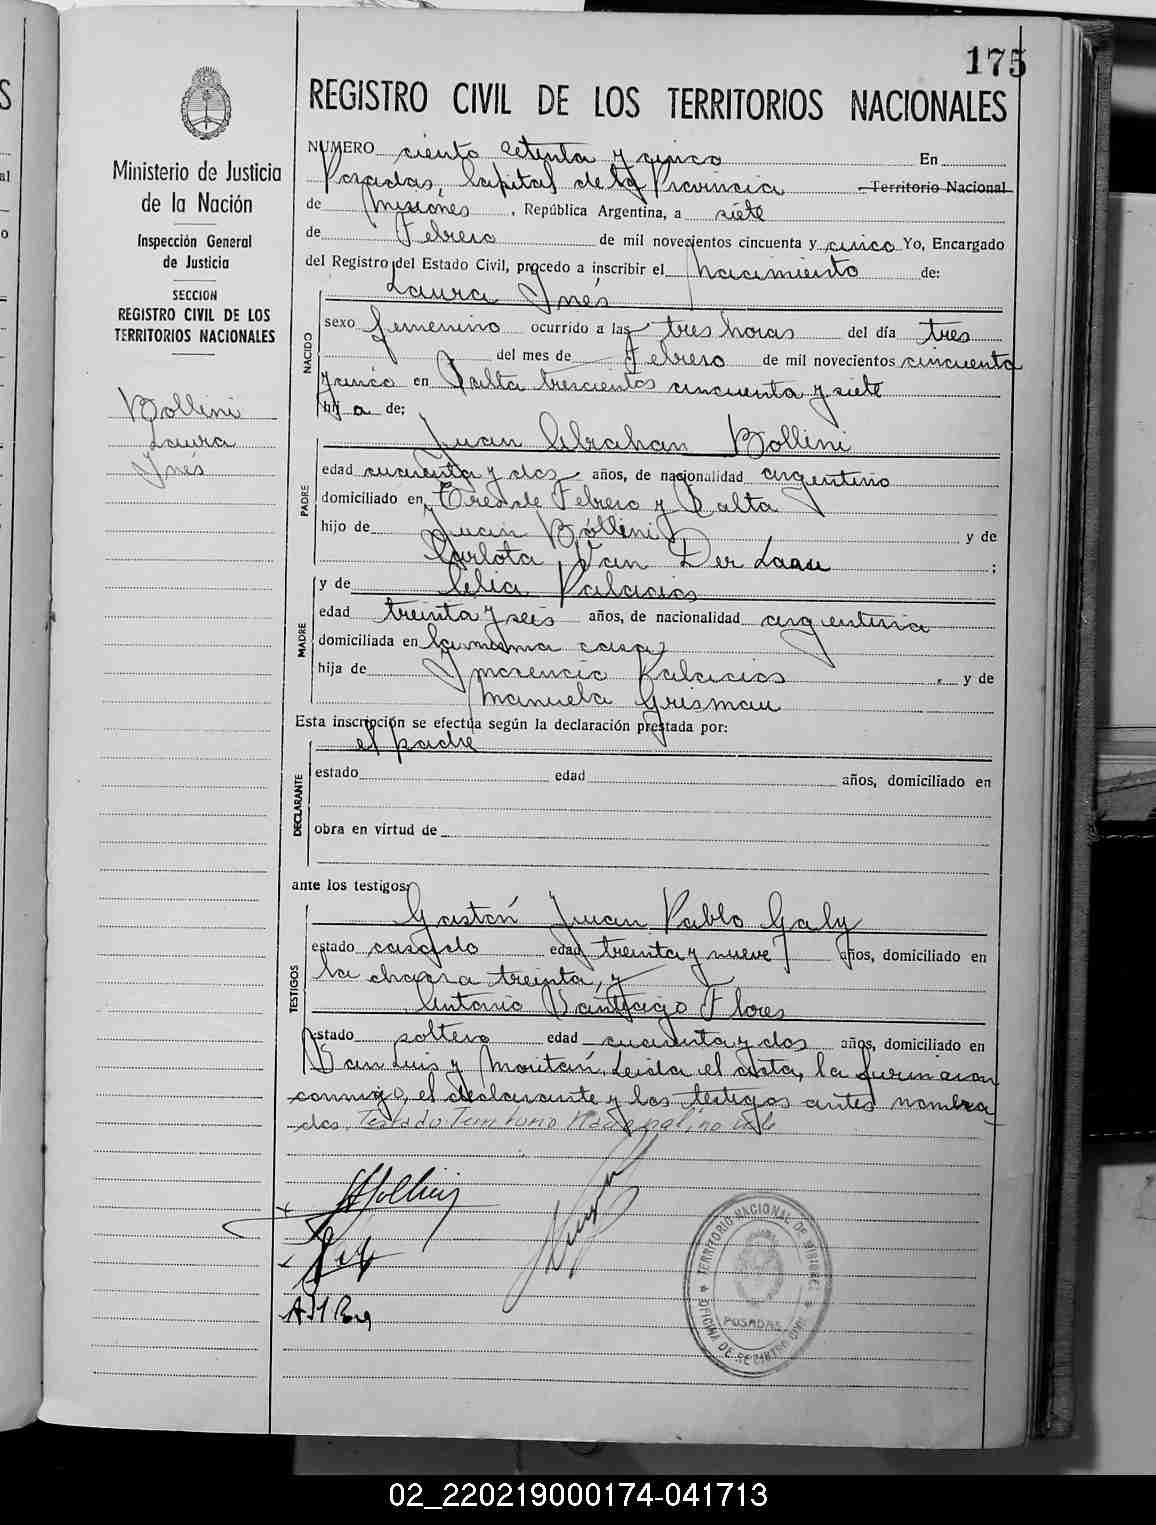 175
REGISTRO CIVIL DE LOS TERRITORIOS NACIONALES
Ministerio de Justicia
de la Nación
Inspección General
de Justicia
SECCION
REGISTRO CIVIL DE LOS
TERRITORIOS NACIONALES
Bollini
Laura
Inés
NUMERO ciento setenta y cinco En
Posadas, Capital de la Provincia Territorio Nacional
de Misiones, República Argentina, a siete
de Febrero de mil novecientos cincuenta y cinco Yo, Encargado
del Registro del Estado Civil, procedo a inscribir el nacimiento de:
Laura Inés
NACIDO
sexo femenino ocurrido a las tres horas del día tres
del mes de Febrero de mil novecientos cincuenta
y cinco en Salta trescientos cincuenta y siete
hija de:
Juan Abrahan Bollini
PADRE
edad cuarenta y dos años, de nacionalidad argentino
domiciliado en Tres de Febrero y Salta
hijo de Juan Bollini y de
Carlota Van Der Laau ;
y de Celia Palacios
MADRE
edad treinta y seis años, de nacionalidad argentina
domiciliada en la misma casa
hija de Palacios, y de
Manuela Grismau
Esta inscripción se efectúa según la declaración prestada por:
el padre
DECLARANTE
estado edad años, domiciliado en
obra en virtud de
ante los testigos:
Gastón Juan Pablo Galy
TESTIGOS
estado casado edad treinta y nueve años, domiciliado en
la chacra treinta, y
Antonio Santiago Flores
estado soltero edad cuarenta y dos años, domiciliado en
San Luis y Moritán. Leida el acta, la firmaron
conmigo, el declarante y los testigos antes nombra
dos. Testado: Territorio Nacional, no vale
TERRITORIO NACIONAL DE MISIONES
POSADAS
OFICINA DE REGISTRO CIVIL
02_220219000174-041713